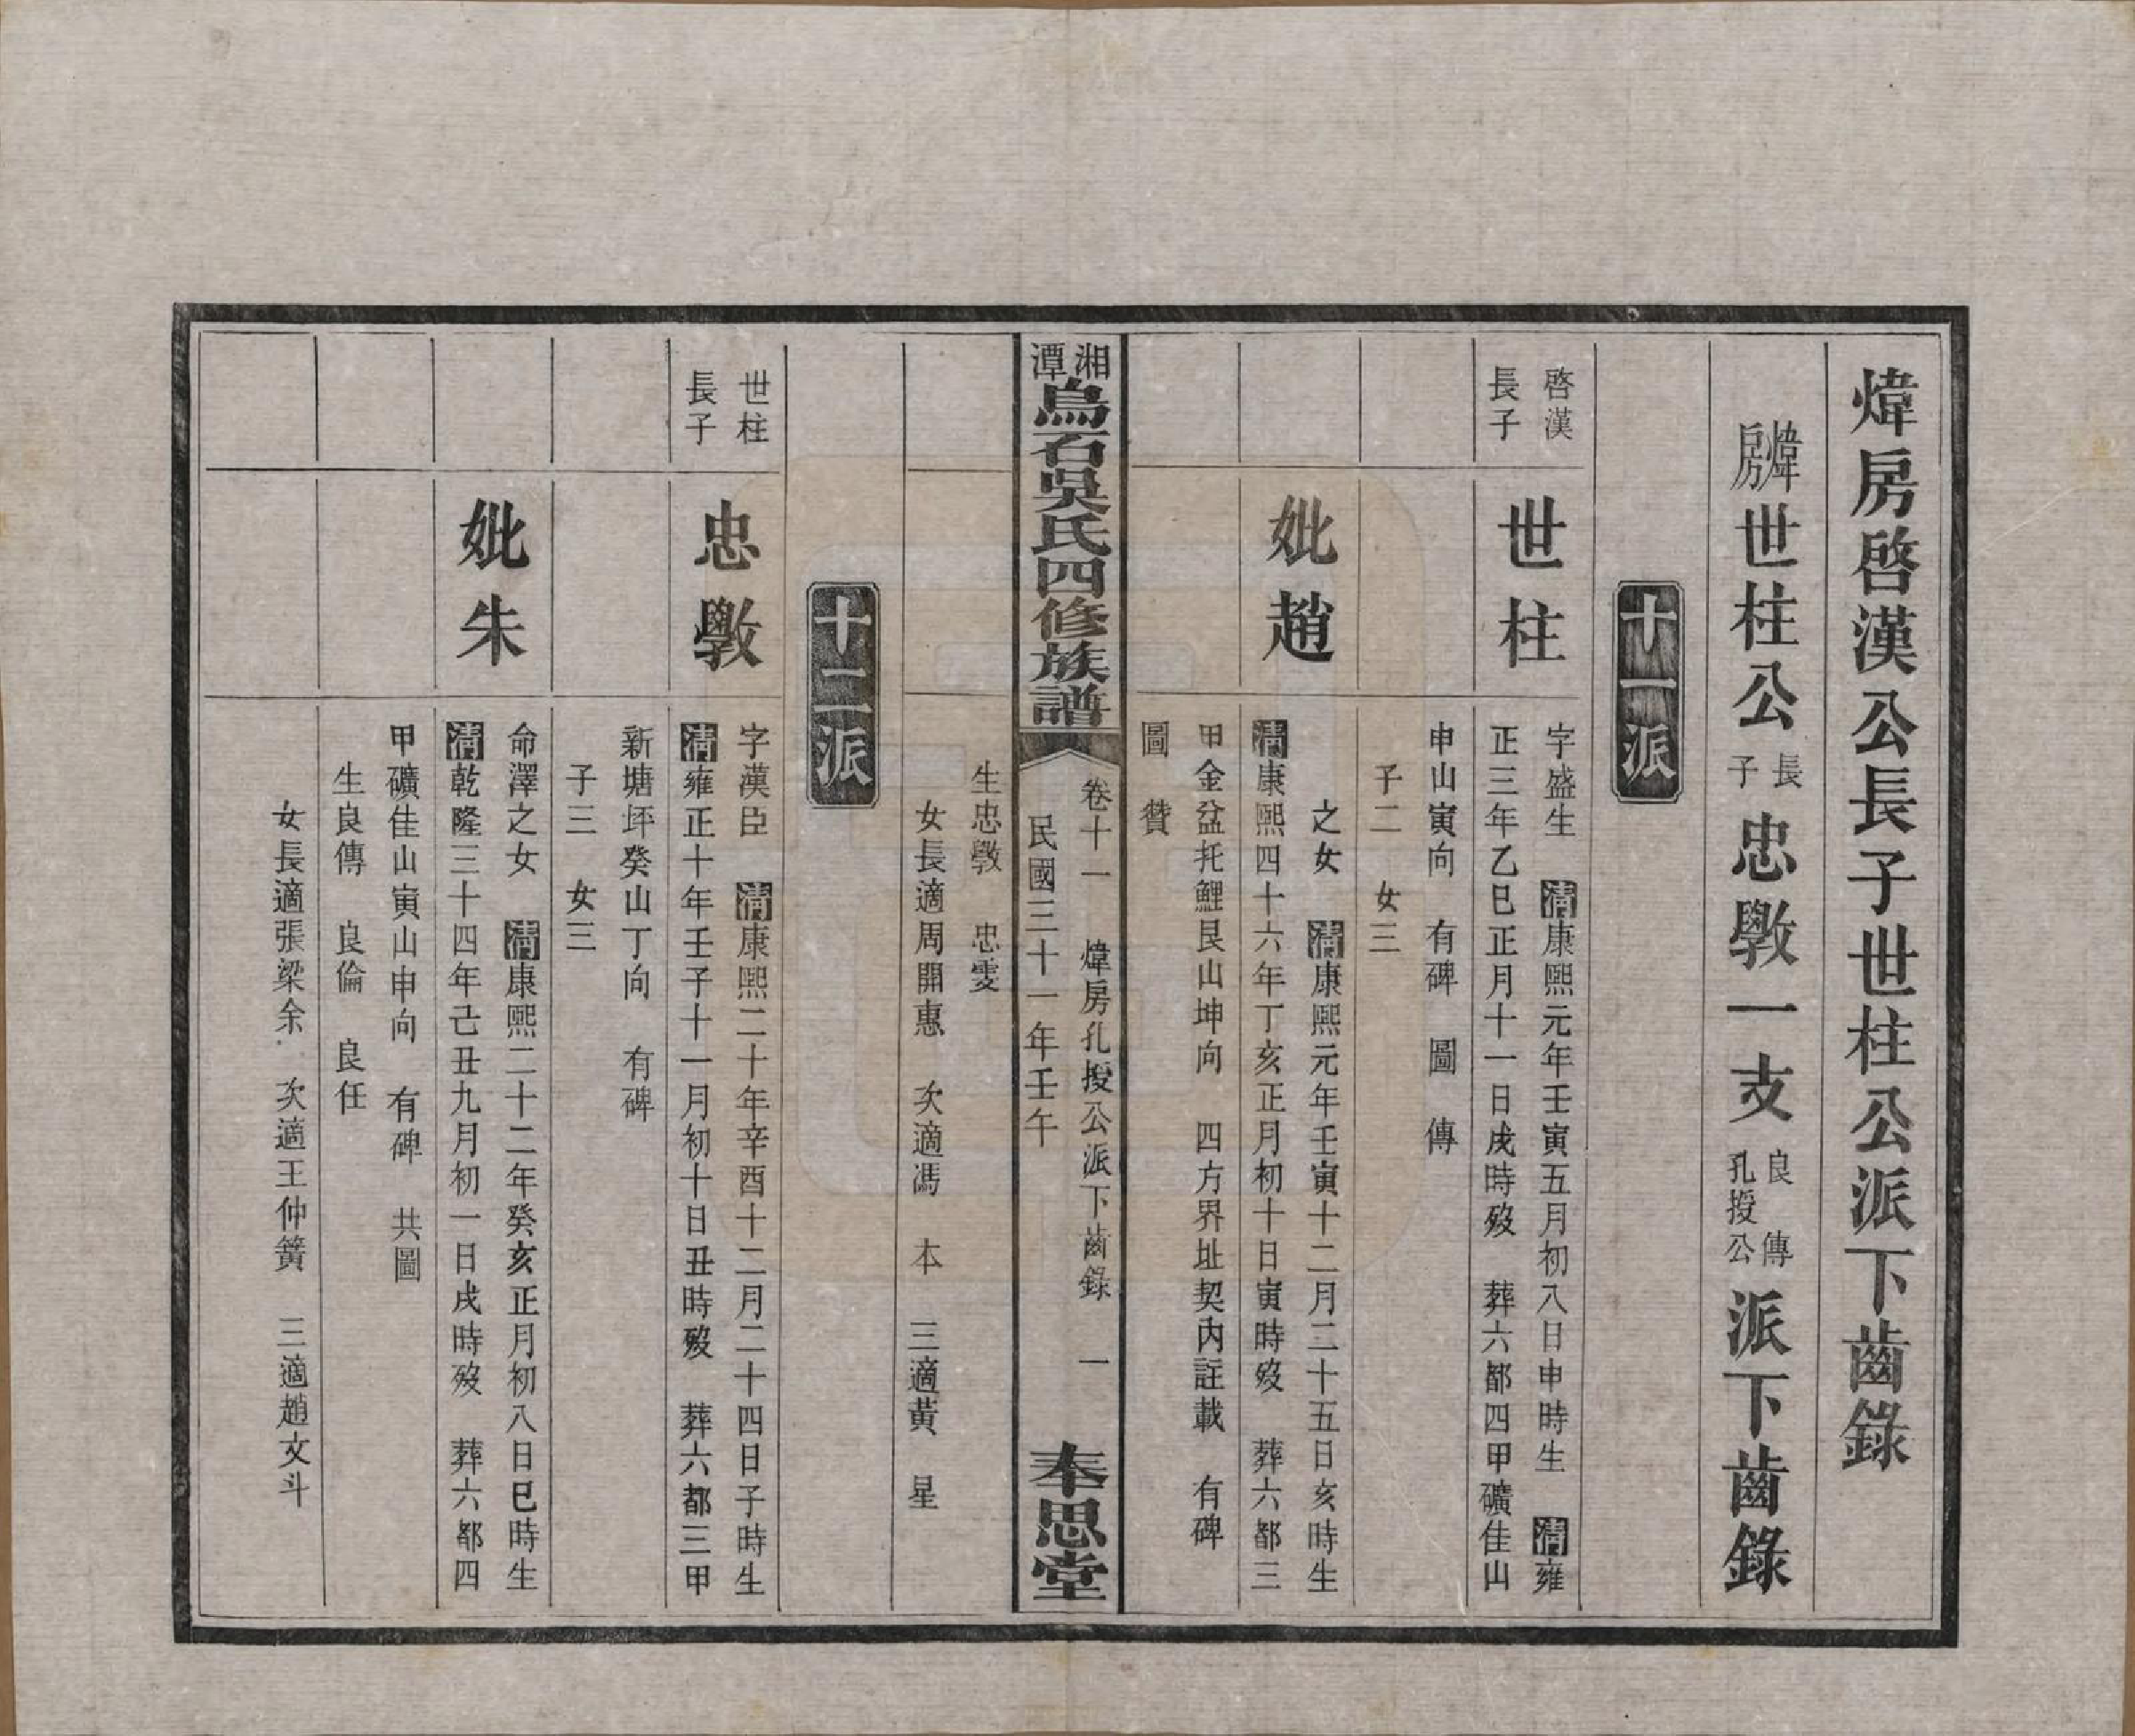 煒房啓漢公長子世柱公派下齒錄
煒房世柱公長子忠斅一支良傳孔授公派下齒錄
十一派
啓漢長子
世柱
字盛生　清康熙元年壬寅五月初八日申時生　清雍
正三年乙巳正月十一日戌時歿　葬六都四甲礦佳山
申山寅向　有碑　圖　傳
子二　女三
妣趙
之女　清康熙元年壬寅十二月二十五日亥時生
清康熙四十六年丁亥正月初十日寅時歿　葬六都三
甲金盆托鯉艮山坤向　四方界址契內註載　有碑
圖　贊
湘潭烏石吳氏四修族譜
卷十一　煒房孔授公派下齒錄　一
民國三十一年壬午
奉思堂
生忠斅　忠雯
女長適周開惠　次適馮　本　三適黃　星
十二派
世柱長子
忠斅
字漢臣　清康熙二十年辛酉十二月二十四日子時生
清雍正十年壬子十一月初十日丑時歿　葬六都三甲
新塘坪癸山丁向　有碑
子三　女三
妣朱
命澤之女　清康熙二十二年癸亥正月初八日巳時生
清乾隆三十四年己丑九月初一日戌時歿　葬六都四
甲礦佳山寅山申向　有碑　共圖
生良傳　良倫　良任
女長適張梁余　次適王仲簧　三適趙文斗